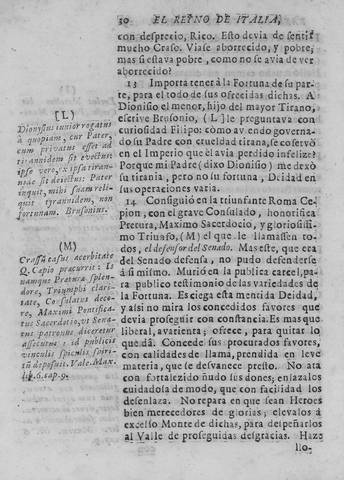 10 EL REYNO DE ITALIA,
con desprecio, Rico. Esto devia de sentir
mucho Craso. Viase aborrecido, y pobre;
mas si estava pobre, como no se avia de ver
aborrecido?
13 Importa tener à la Fortuna de su par-
te, para el todo de sus ofrecidas dichas. A
Dionisio el menor, hijo del mayor Tirano,
escrive Brusonio, (L) le preguntava con
curiosidad Filipo: còmo av endo governa-
do su Padre con crueldad tirana, se conservò
en el Imperio que èl avia perdido infelize?
Porque mi Padre (dixo Dionisio) me dexò
su tirania, pero no su fortuna, Deidad en
sus operaciones varia.
14 Consiguiò en la triunfante Roma Ce-
pion, con el grave Consulado, honorifica
Pretura, Maximo Sacerdocio, y gloriosissi-
mo Triunfo, (M) el que le llamassen to-
dos, el defensor del Senado. Mas este, que era
del Senado defensa, no pudo defenderse
à si mismo. Muriò en la publica carcel, pa-
ra publico testimonio de las variedades de
la Fortuna. Es ciega esta mentida Deidad,
y assi no mira los concedidos favores que
devia proseguir con constancia. Es mas que
liberal, avarienta; ofrece, para quitar lo
que dà. Concede sus procurados favores,
con calidades de llama, prendida en leve
materia, que se desvanece presto. No ata
con fortalezido nudo sus dones; enlazalos
cuidadola de modo, que con facilidad los
desenlaza. No repara en que sean Heroes
bien merecedores de glorias; elevalos à
excelso Monte de dichas, para despeñarlos
al Valle de proseguidas desgracias. Haze
llo-
[L]
Dionysius iunior rogatus
à quopiam, cur Pater,
cum privatus esset ad
tirannidem sit evectus:
ipse vero, ex ipsa tiran-
nide sit deiectus: Pater
inquit, mihi suam reli-
quit tyrannidem, non
fortunam. Brusonius.
(M)
Crassi casus acerbitate
Q. Capio præcurrit: is
namque Pretura splen-
dore, Triumphi clari-
tate, Consulatus deco-
re, Maximi Pontifica-
tus Sacerdotio, ut Sena-
tus patronus diceretur
assecutus: id publicis
vinculis spiculis spiri-
tũ deposuit. Vale. Max.
lib. 6. cap. 9.